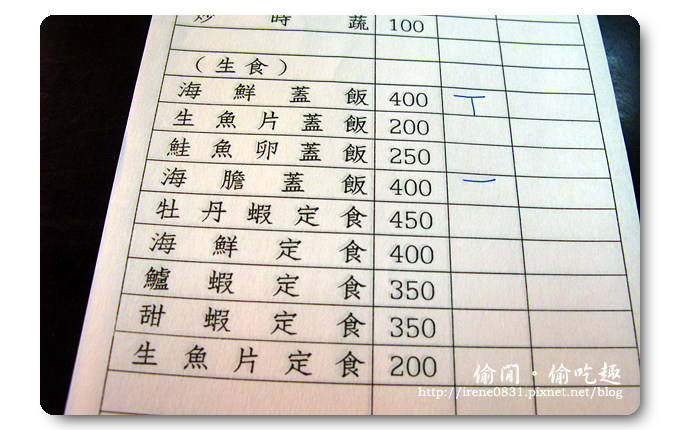 炒時蔬 100
（生食）
海鮮蓋飯 400 丅
生魚片蓋飯 200
鮭魚卵蓋飯 250
海膽蓋飯 400 一
牡丹蝦定食 450
海鮮定食 400
鱸蝦定食 350
甜蝦定食 350
生魚片定食 200
偷閒・偷吃趣
http://irene0831.pixnet.net/blog